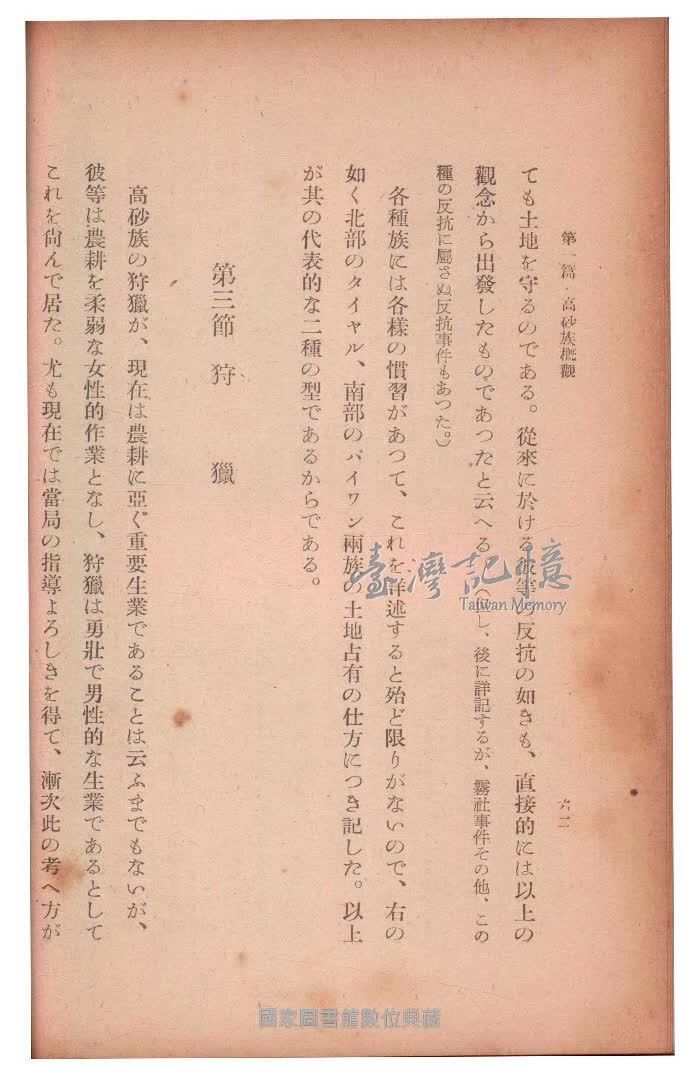 第一篇・高砂族概觀
六二
ても土地を守るのである。從來に於ける彼等の反抗の如きも、直接的には以上の
觀念から出發したものであつたと云へる。(但し、後に詳記するが、霧社事件その他、この
種の反抗に屬さぬ反抗事件もあつた。)
各種族には各樣の慣習があつて、これを詳述すると殆ど限りがないので、右の
如く北部のタイヤル、南部のパイワン兩族の土地占有の仕方につき記した。以上
が其の代表的な二種の型であるからである。
第三節 狩 獵
高砂族の狩獵が、現在は農耕に亞ぐ重要生業であることは云ふまでもないが、
彼等は農耕を柔弱な女性的作業となし、狩獵は勇壯で男性的な生業であるとして
これを尙んで居た。尤も現在では當局の指導よろしきを得て、漸次此の考へ方が
臺灣記憶
Taiwan Memory
國家圖書館數位典藏